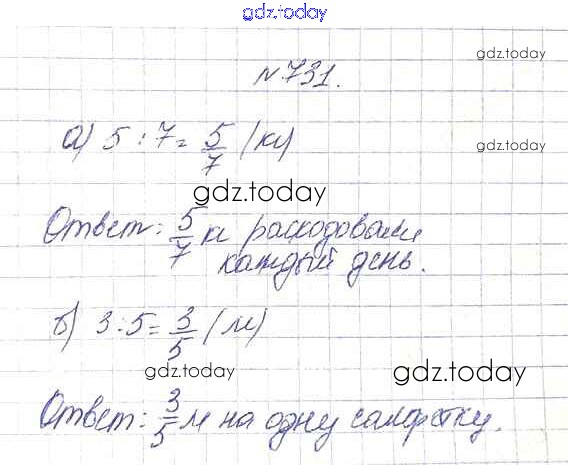 gdz.today
gdz.today
№731.
а) 5 : 7 = 5/7 (кг)
gdz.today
gdz.today
Ответ: 5/7 кг расходовали
каждый день.
б) 3 : 5 = 3/5 (м)
gdz.today
gdz.today
Ответ: 3/5 м на одну салфетку.